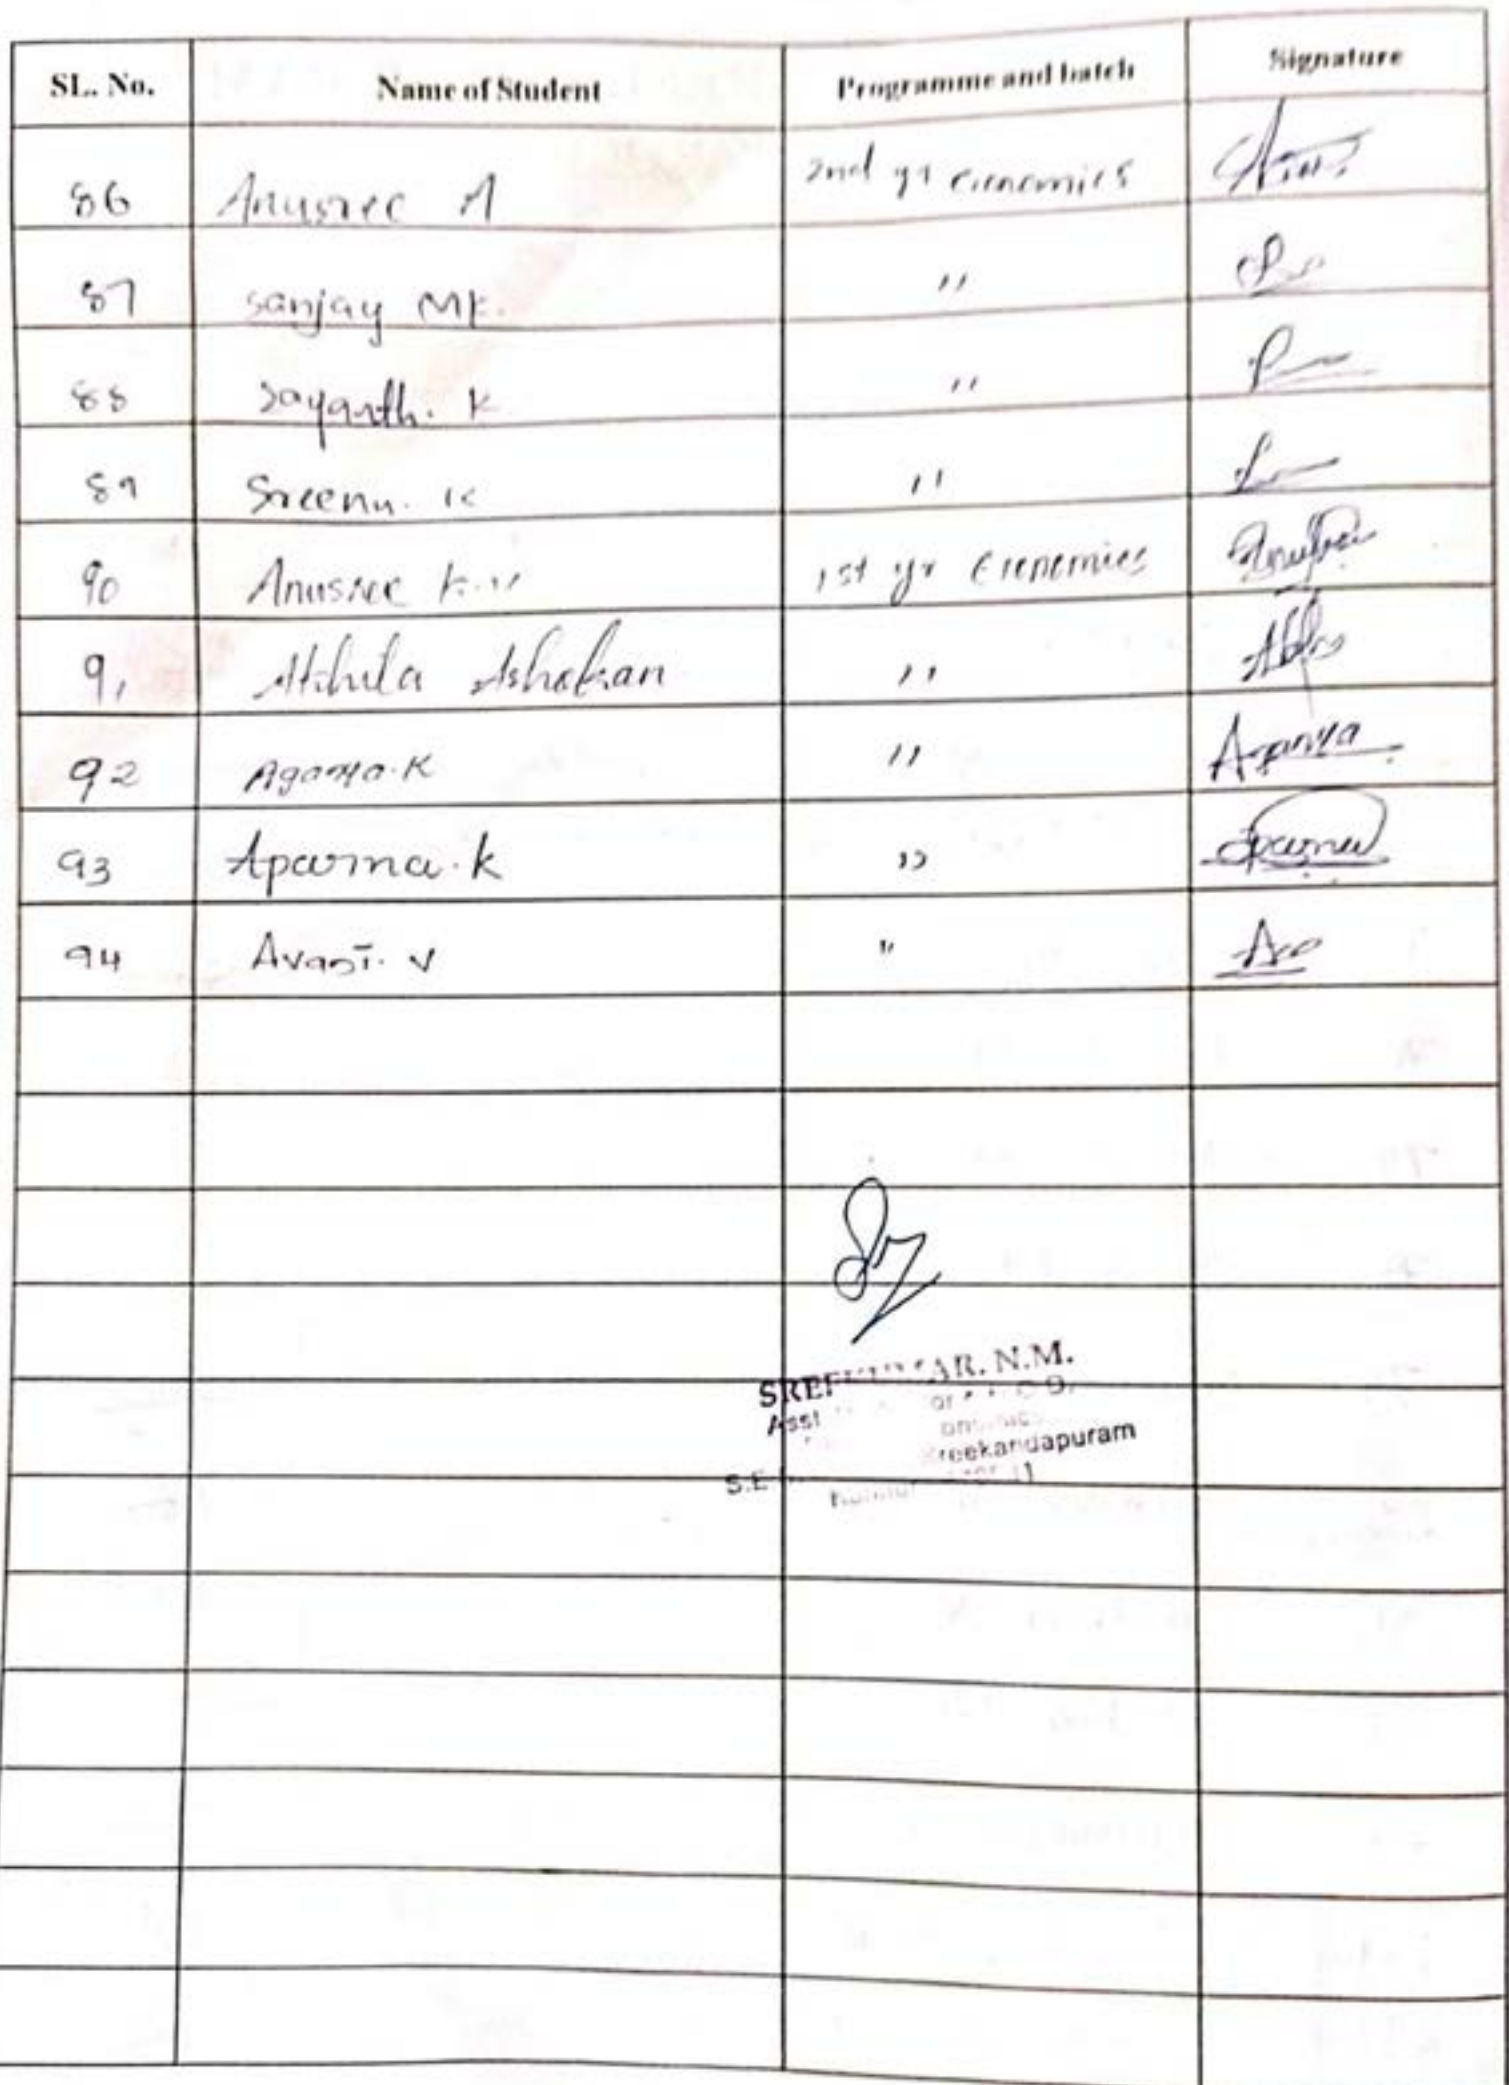 SL. No. Name of Student Programme and batch Signature
86 Anusree A 2nd yr economics
87 Sanjay MK. "
88 Sayanth. K "
89 Sreenu. K "
90 Anusree K.V 1st yr Economics
91 Athula Ashokan "
92 Aganya.K " Aganya
93 Aparna.K " Aparna
94 "
SREEKUMAR. N.M.
Asst
Sreekandapuram
S.E